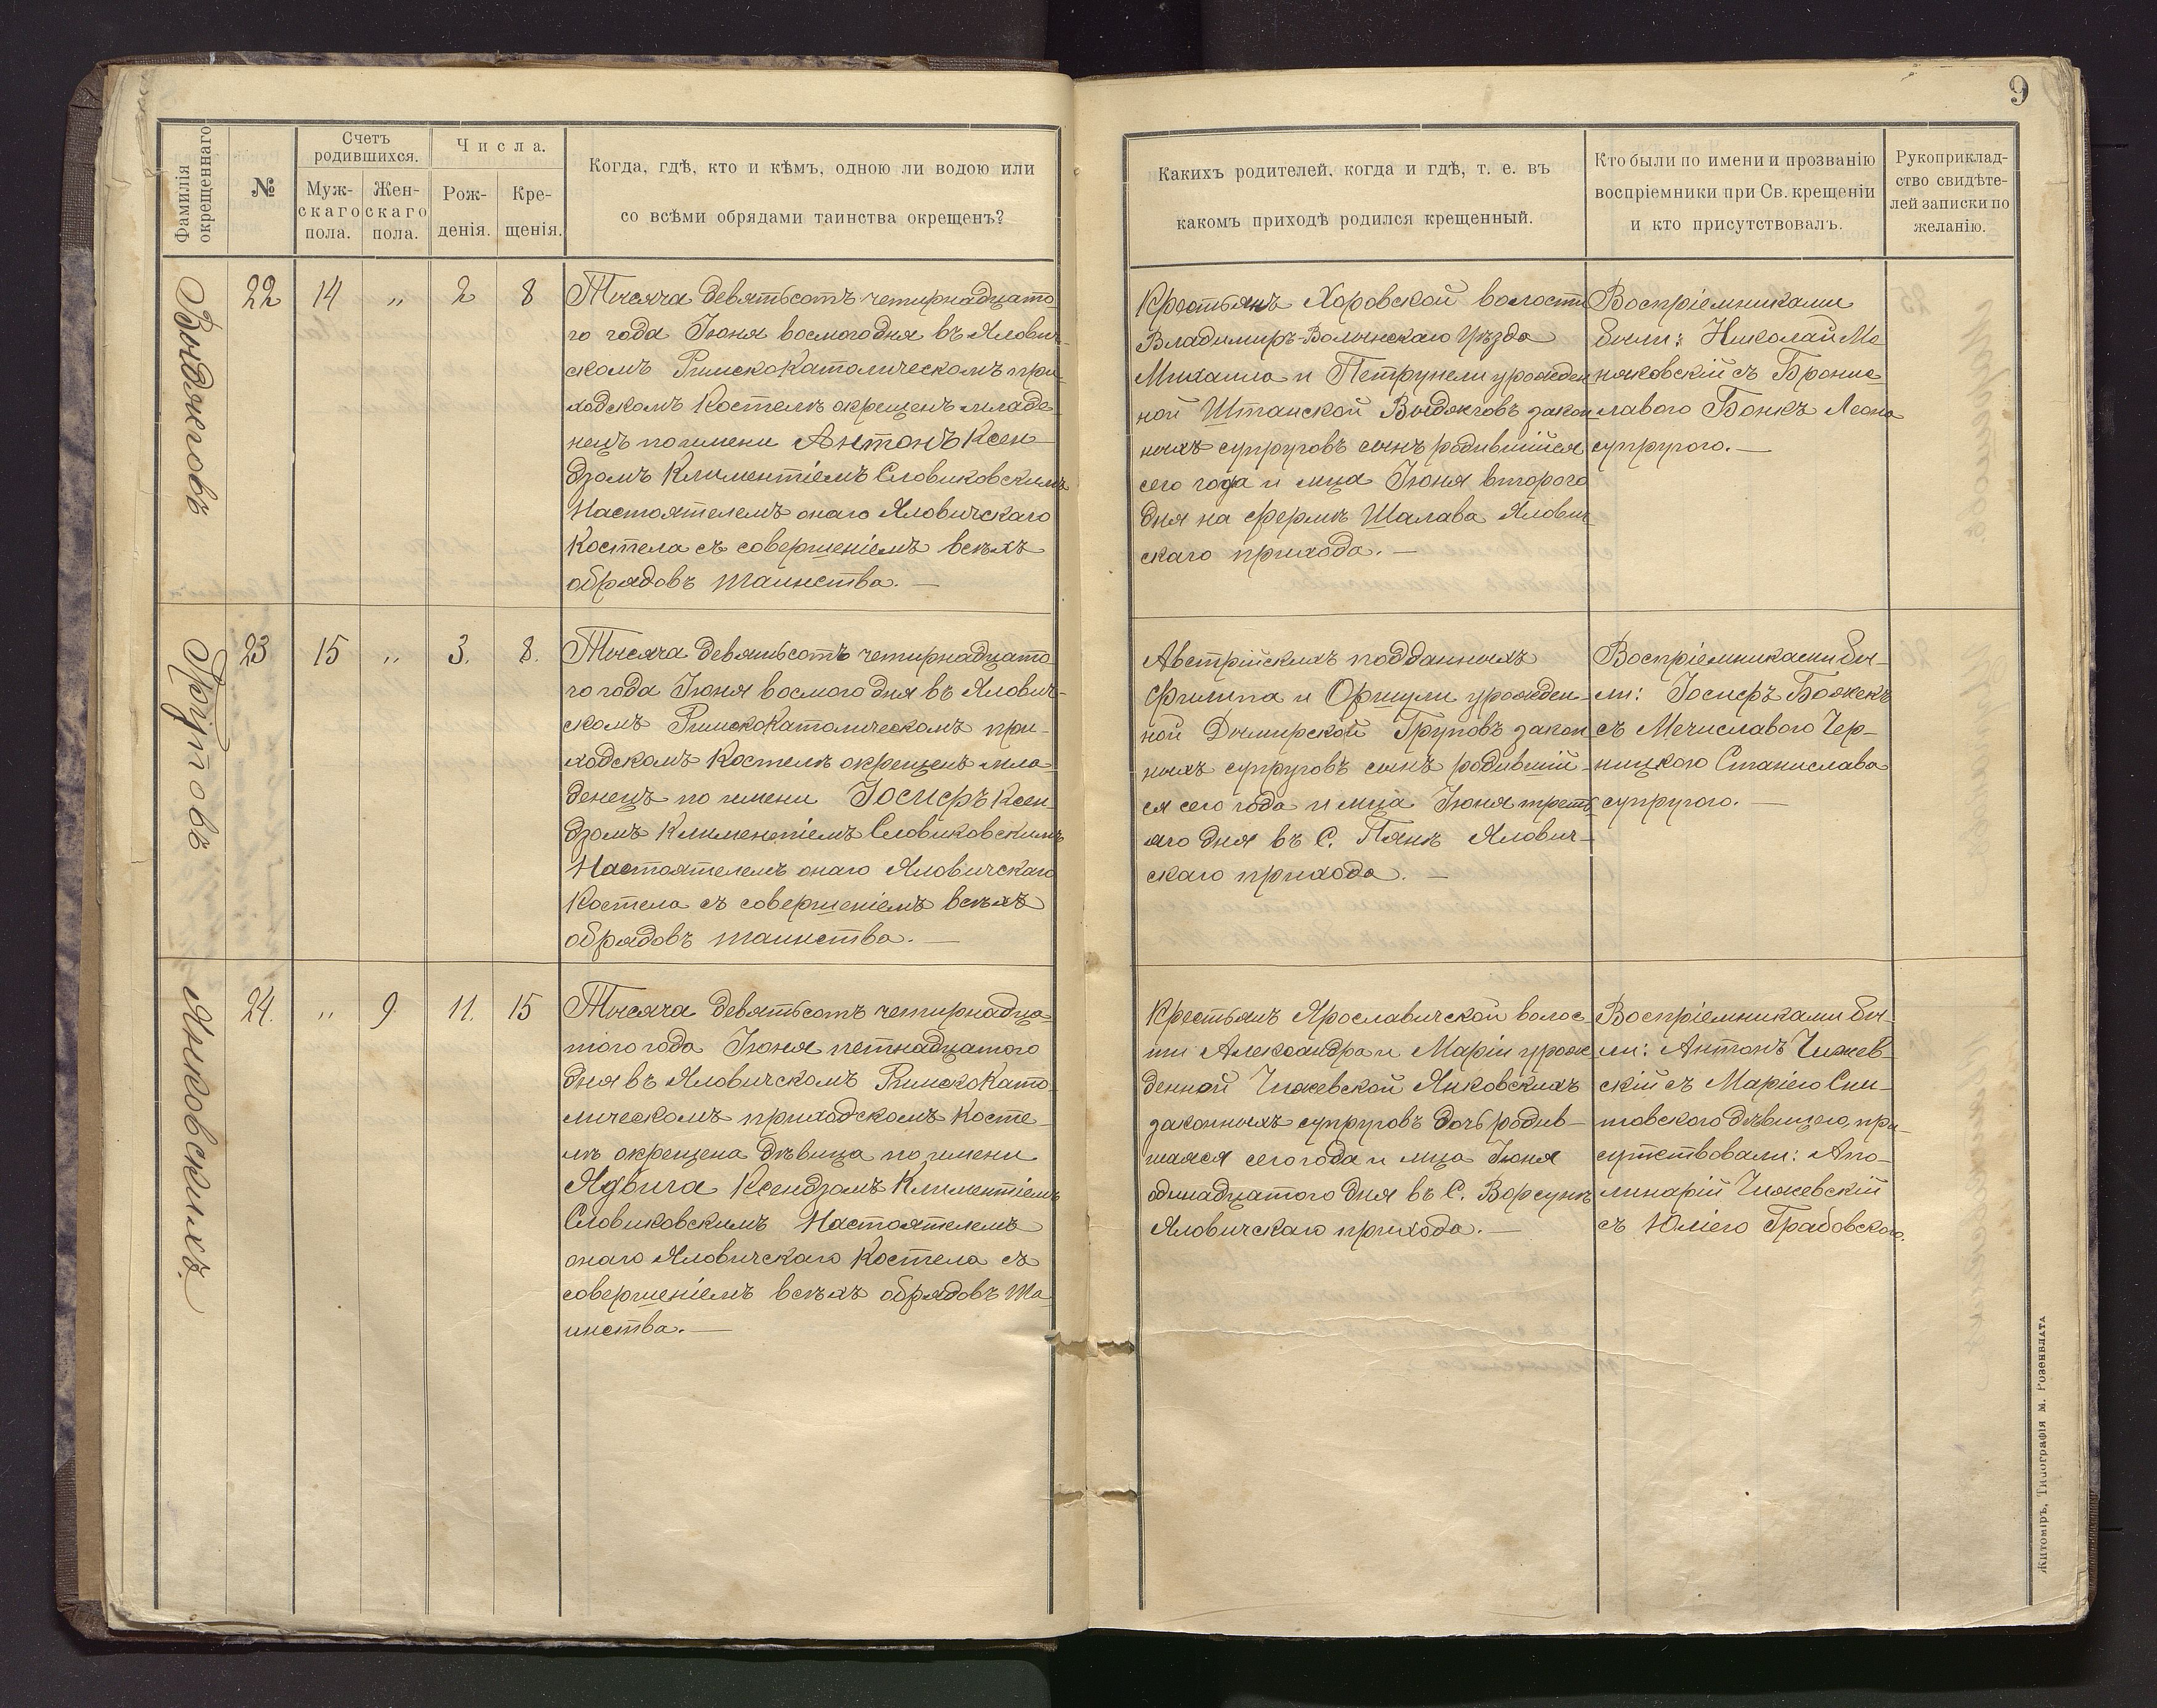 9
Фамилія
окрещеннаго
№
Счетъ
родившихся.
Муж-
скаго
пола.
Жен-
скаго
пола.
Числа.
Рож-
денія.
Кре-
щенія.
Когда, гдѣ, кто и кѣмъ, одною ли водою или
со всѣми обрядами таинства окрещенъ?
Какихъ родителей, когда и гдѣ, т. е. въ
какомъ приходѣ родился крещенный.
Кто были по имени и прозванію
воспріемники при Св. крещеніи
и кто присутствовалъ.
Рукоприклад-
ство свидѣте-
лей записки по
желанію.
22 14 „ 2 8
Тысяча девятьсотъ четырнадцато
го года Іюня восмого дня въ Ялович-
скомъ РимскоКатолическомъ при-
ходскомъ Костелѣ окрещенъ младе-
нецъ по имени Антонъ Ксен-
дзомъ Климентіемъ Словиковскимъ
Настоятелемъ онаго Яловичскаго
Костела съ совершеніемъ всѣхъ
обрядовъ таинства. —
Крестьянъ Хоровской волости
Владимиръ-Волынскаго Уѣзда
Михаила и Петрунели урожден
ной Штанской закон
ныхъ супруговъ сынъ родившійся
сего года и мца Іюня второго
дня на фермѣ Шалава Ялович
скаго прихода. —
Воспріемниками
были: Николай Ма
ковскій съ Брони
славою Бонкъ Леона
супругою. —
Групповъ
23 15 „ 3. 8.
Тысяча девятьсотъ четырнадцато
го года Іюня восмого дня въ Ялович-
скомъ РимскоКатолическомъ при-
ходскомъ Костелѣ окрещенъ мла-
денецъ по имени Іосифъ Ксен-
дзомъ Климентіемъ Словиковскимъ
Настоятелемъ онаго Яловичскаго
Костела съ совершеніемъ всѣхъ
обрядовъ таинства. —
Австрійскихъ подданныхъ
Филипа и Оршули урожден-
ной Дымирской Груповъ закон
ныхъ супруговъ сынъ родившій-
ся сего года и мца Іюня треть
яго дня въ С. Пянѣ Ялович-
скаго прихода. —
Воспріемниками бы-
ли: Іосифъ Божекъ
съ Мечиславою Чер-
ницкою Станислава
супругою. —
Янковскихъ.
24. „ 9. 11. 15
Тысяча девятьсотъ четырнадца-
того года Іюня петнадцатого
дня въ Яловичскомъ РимскоКато-
лическомъ приходскомъ Косте-
лѣ окрещена дѣвица по имени
Ядвига Ксендзомъ Климентіемъ
Словиковскимъ Настоятелемъ
онаго Яловичскаго Костела съ
совершеніемъ всѣхъ обрядовъ та-
инства. —
Крестьянъ Ярославичской волос
ти Александра и Маріи урож
денной Чижевской Янковскихъ
законныхъ супруговъ дочь родив-
шаяся сего года и мца Іюня
одинадцатого дня въ С. Ворсунѣ
Яловичскаго прихода. —
Воспріемниками бы-
ли: Антонъ Чижев-
скій съ Маріею Сни-
товскою дѣвицею, при-
сутствовали: Апо-
линарій Чижевскій
съ Юліею Грабовскою.
Житоміръ, Типографія М. Розенблата